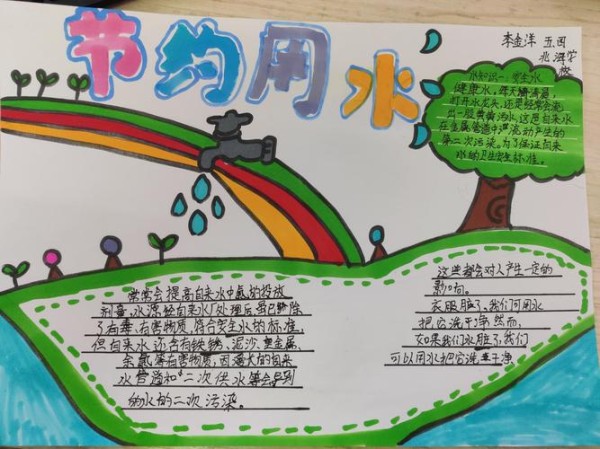 节约用水
李金洋 五四
水知识——安全水
健康水，每天清晨，
打开水龙头，还是经常会流
出一股黄黄汤水，这是自来水
在金属管道中滞流动产生的
第二次污染。为了保证自来
水的卫生安标准，
常常会提高自来水中氯的投放
剂量，水源经自来水厂处理后，虽已去除
了有毒、有害物质，符合安生水的标准，
但自来水还含有铁锈、泥沙、重金属、
余氯等有害物质，因庞大的自来
水管道和“二次供水”等会导到
纳水的二次污染。
这些都会对人产生一定的
影响。
衣服脏了，我们可用水
把它洗干净，然而，
如果我们水脏了，我们
可以用水把它洗干净